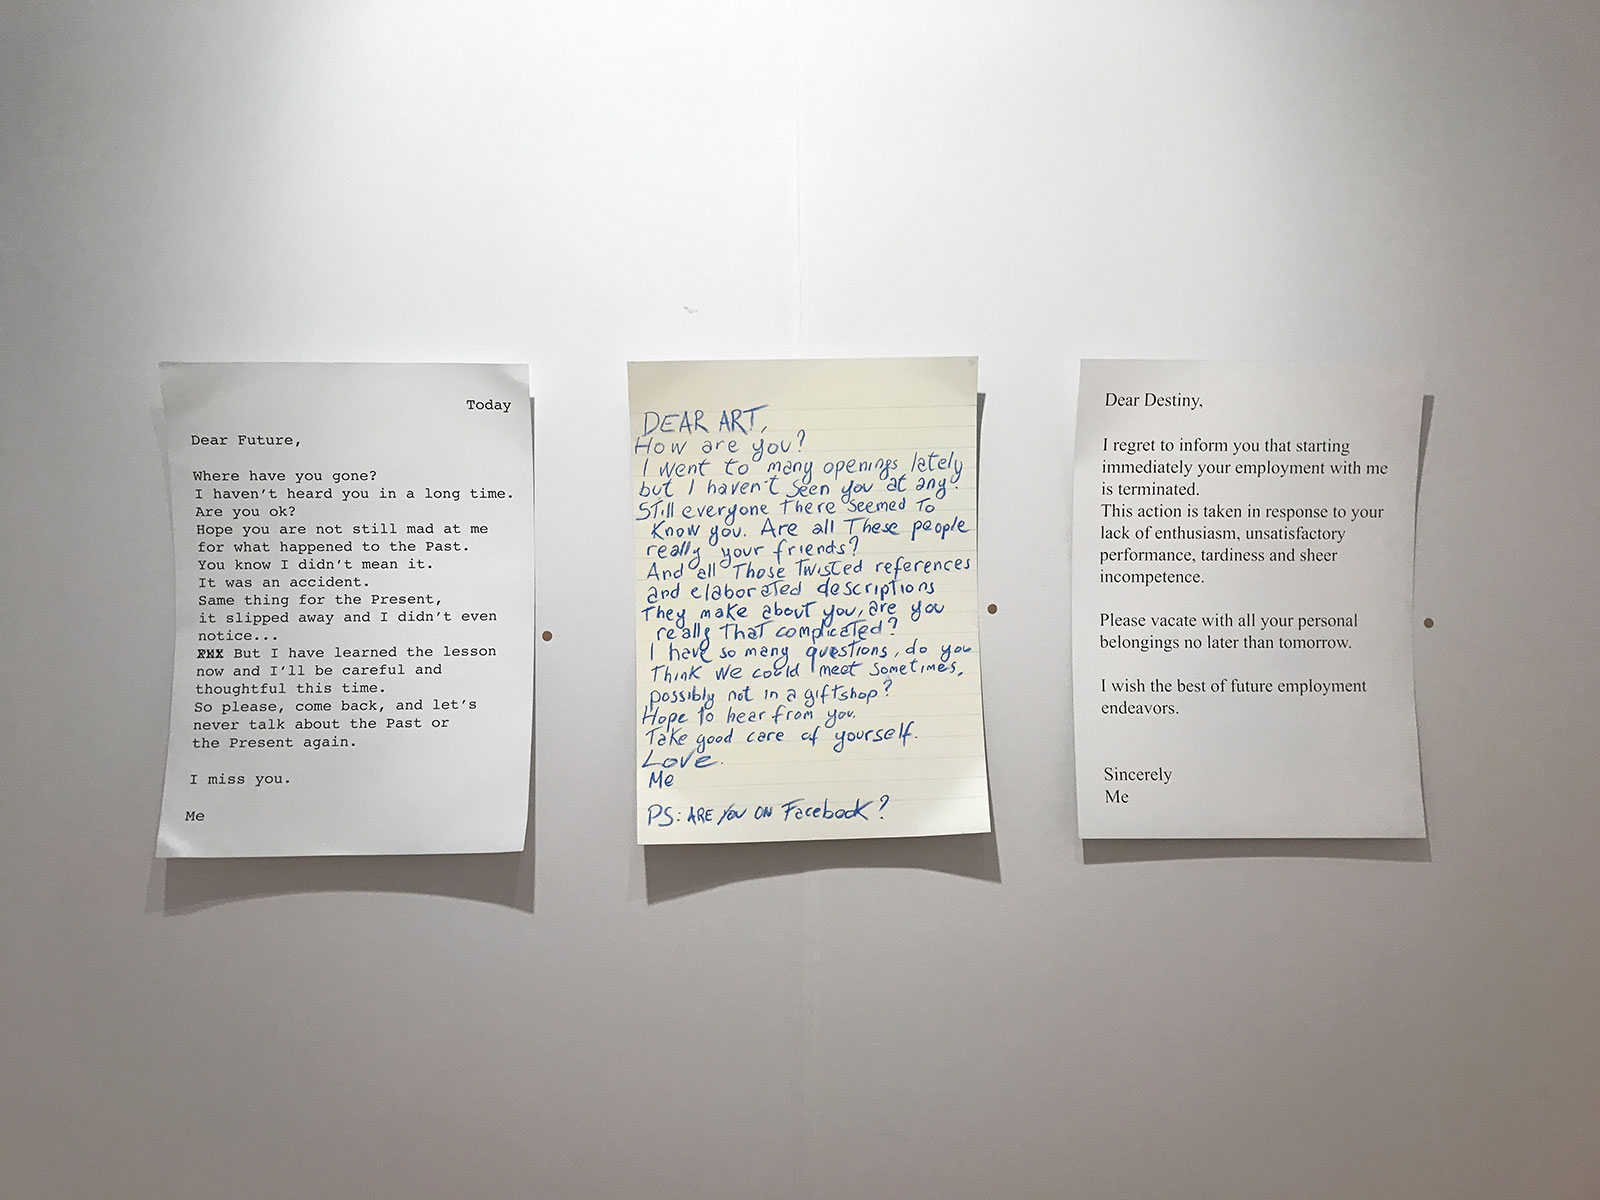 Today
Dear Future,
Where have you gone?
I haven't heard you in a long time.
Are you ok?
Hope you are not still mad at me
for what happened to the Past.
You know I didn't mean it.
It was an accident.
Same thing for the Present,
it slipped away and I didn't even
notice...
But I have learned the lesson
now and I'll be careful and
thoughtful this time.
So please, come back, and let's
never talk about the Past or
the Present again.
I miss you.
Me
DEAR ART,
How are you?
I went to many openings lately
but I haven't seen you at any!
Still everyone there seemed to
know you. Are all these people
really your friends?
And all those twisted references
and elaborated descriptions
they make about you, are you
really that complicated?
I have so many questions, do you
think we could meet sometimes,
possibly not in a giftshop?
Hope to hear from you.
Take good care of yourself.
Love.
Me
PS: ARE YOU ON Facebook?
Dear Destiny,
I regret to inform you that starting
immediately your employment with me
is terminated.
This action is taken in response to your
lack of enthusiasm, unsatisfactory
performance, tardiness and sheer
incompetence.
Please vacate with all your personal
belongings no later than tomorrow.
I wish the best of future employment
endeavors.
Sincerely
Me